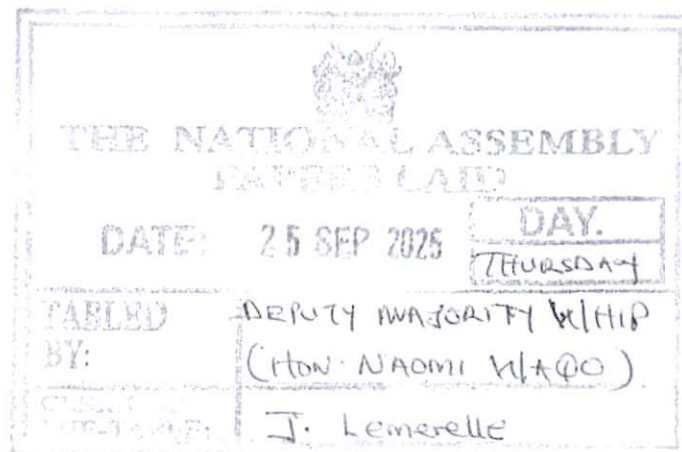 THE NATIONAL ASSEMBLY
PAPERS LAID
DATE: 25 SEP 2025
DAY.
THURSDAY
TABLED BY:
DEPUTY MAJORITY WHIP
(HON. NAOMI WAQO)
J. Lemerelle